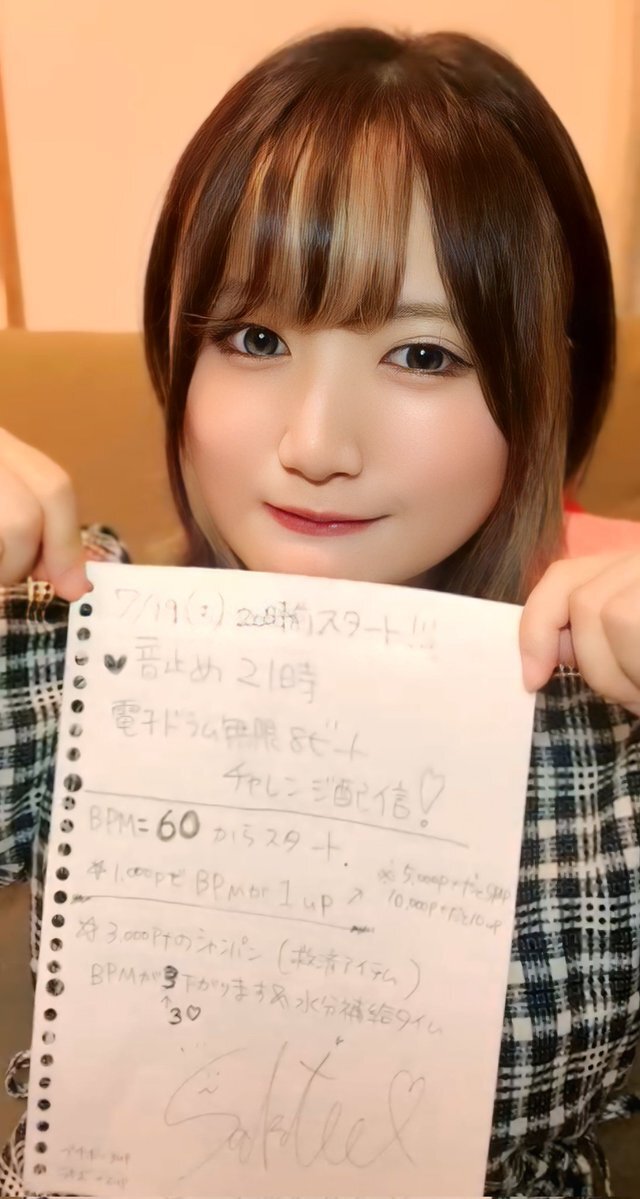 7/19(土) 20時前スタート!!!
♥音止め 21時
電子ドラム無限8ビート
チャレンジ配信!♡
BPM=60からスタート.
※1,000pでBPMが1up↗
※5,000ptだと5up
10,000ptだと10up
※3,000ptのシャンパン(救済アイテム)
BPMが3下がります&水分補給タイム
↑
3♡